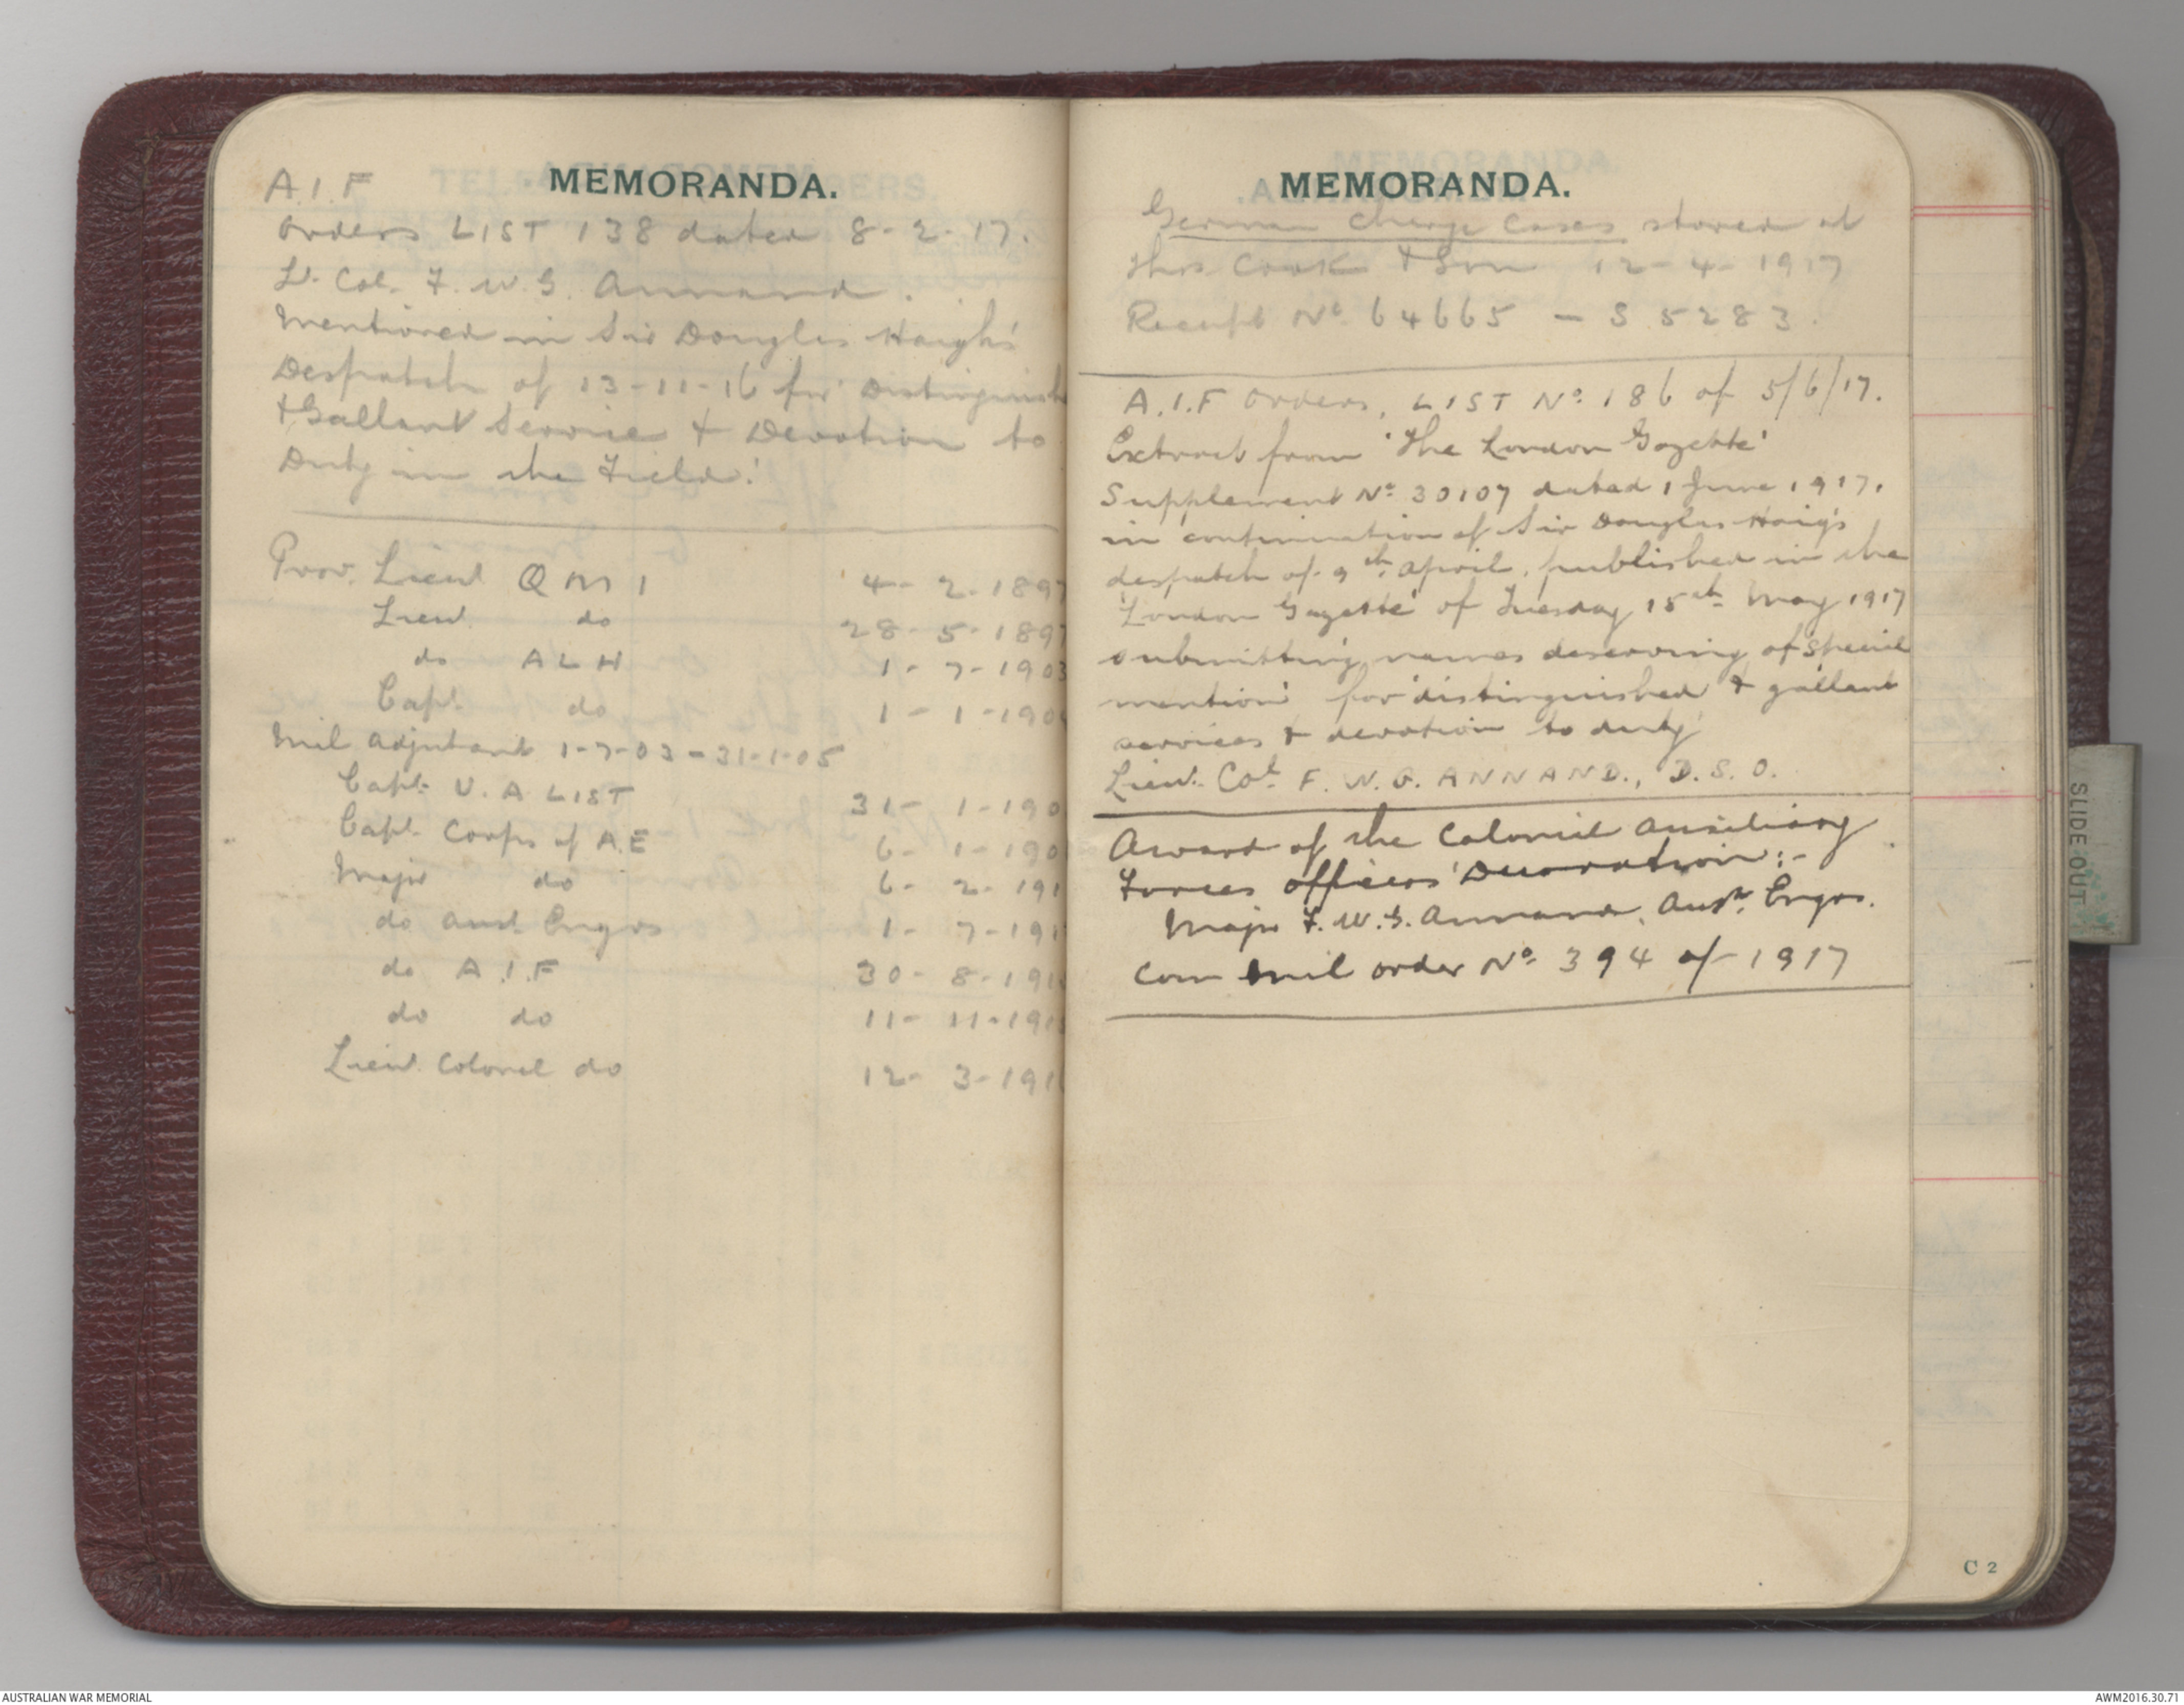 MEMORANDA.
A.I.F
Orders LIST 138 dated 8-2-17.
Lt. Col. F. W. G. Annand.
Mentioned in Sir Douglas Haigh's
Despatch of 13-11-16 for Distinguish
& Gallant Service & Devotion to
Duty in the Field.'
Prov. Lieut Q M I 4-2-1897
Lieut. do 28-5-1897
do A L H 1-7-1903
Capt. do 1-1-190
Mil Adjutant 1-7-03-31-1-05
Capt. U. A LIST 31-1-190
Capt. Corps of A.E 6-1-190
Major do 6-2-191
do Aust. Engrs 1-7-191
do A.I.F 30-8-191
do do 11-11-191
Lieut. Colonel do 12-3-191
MEMORANDA.
German charge cases stored at
Thos Cook & Son 12-4-1917
Receipt No. 64665 - S 5283.
A.I.F Orders, LIST No. 186 of 5/6/17.
Extract from 'The London Gazette'
Supplement No. 30107 dated 1 June 1917.
in continuation of Sir Douglas Haig's
despatch of 9th April, published in the
'London Gazette' of Tuesday 15th May 1917
submitting names deserving of special
mention' for 'distinguished & gallant
services & devotion to duty'
Lieut. Col. F. W. G. ANNAND., D.S.O.
Award of the Colonial Auxiliary
Forces Officers' Decoration:-
Major F. W. G. Annand. Aust. Engrs.
Com Mil order No. 394 of 1917
SLIDE OUT
C 2
AUSTRALIAN WAR MEMORIAL
AWM2016.30.71